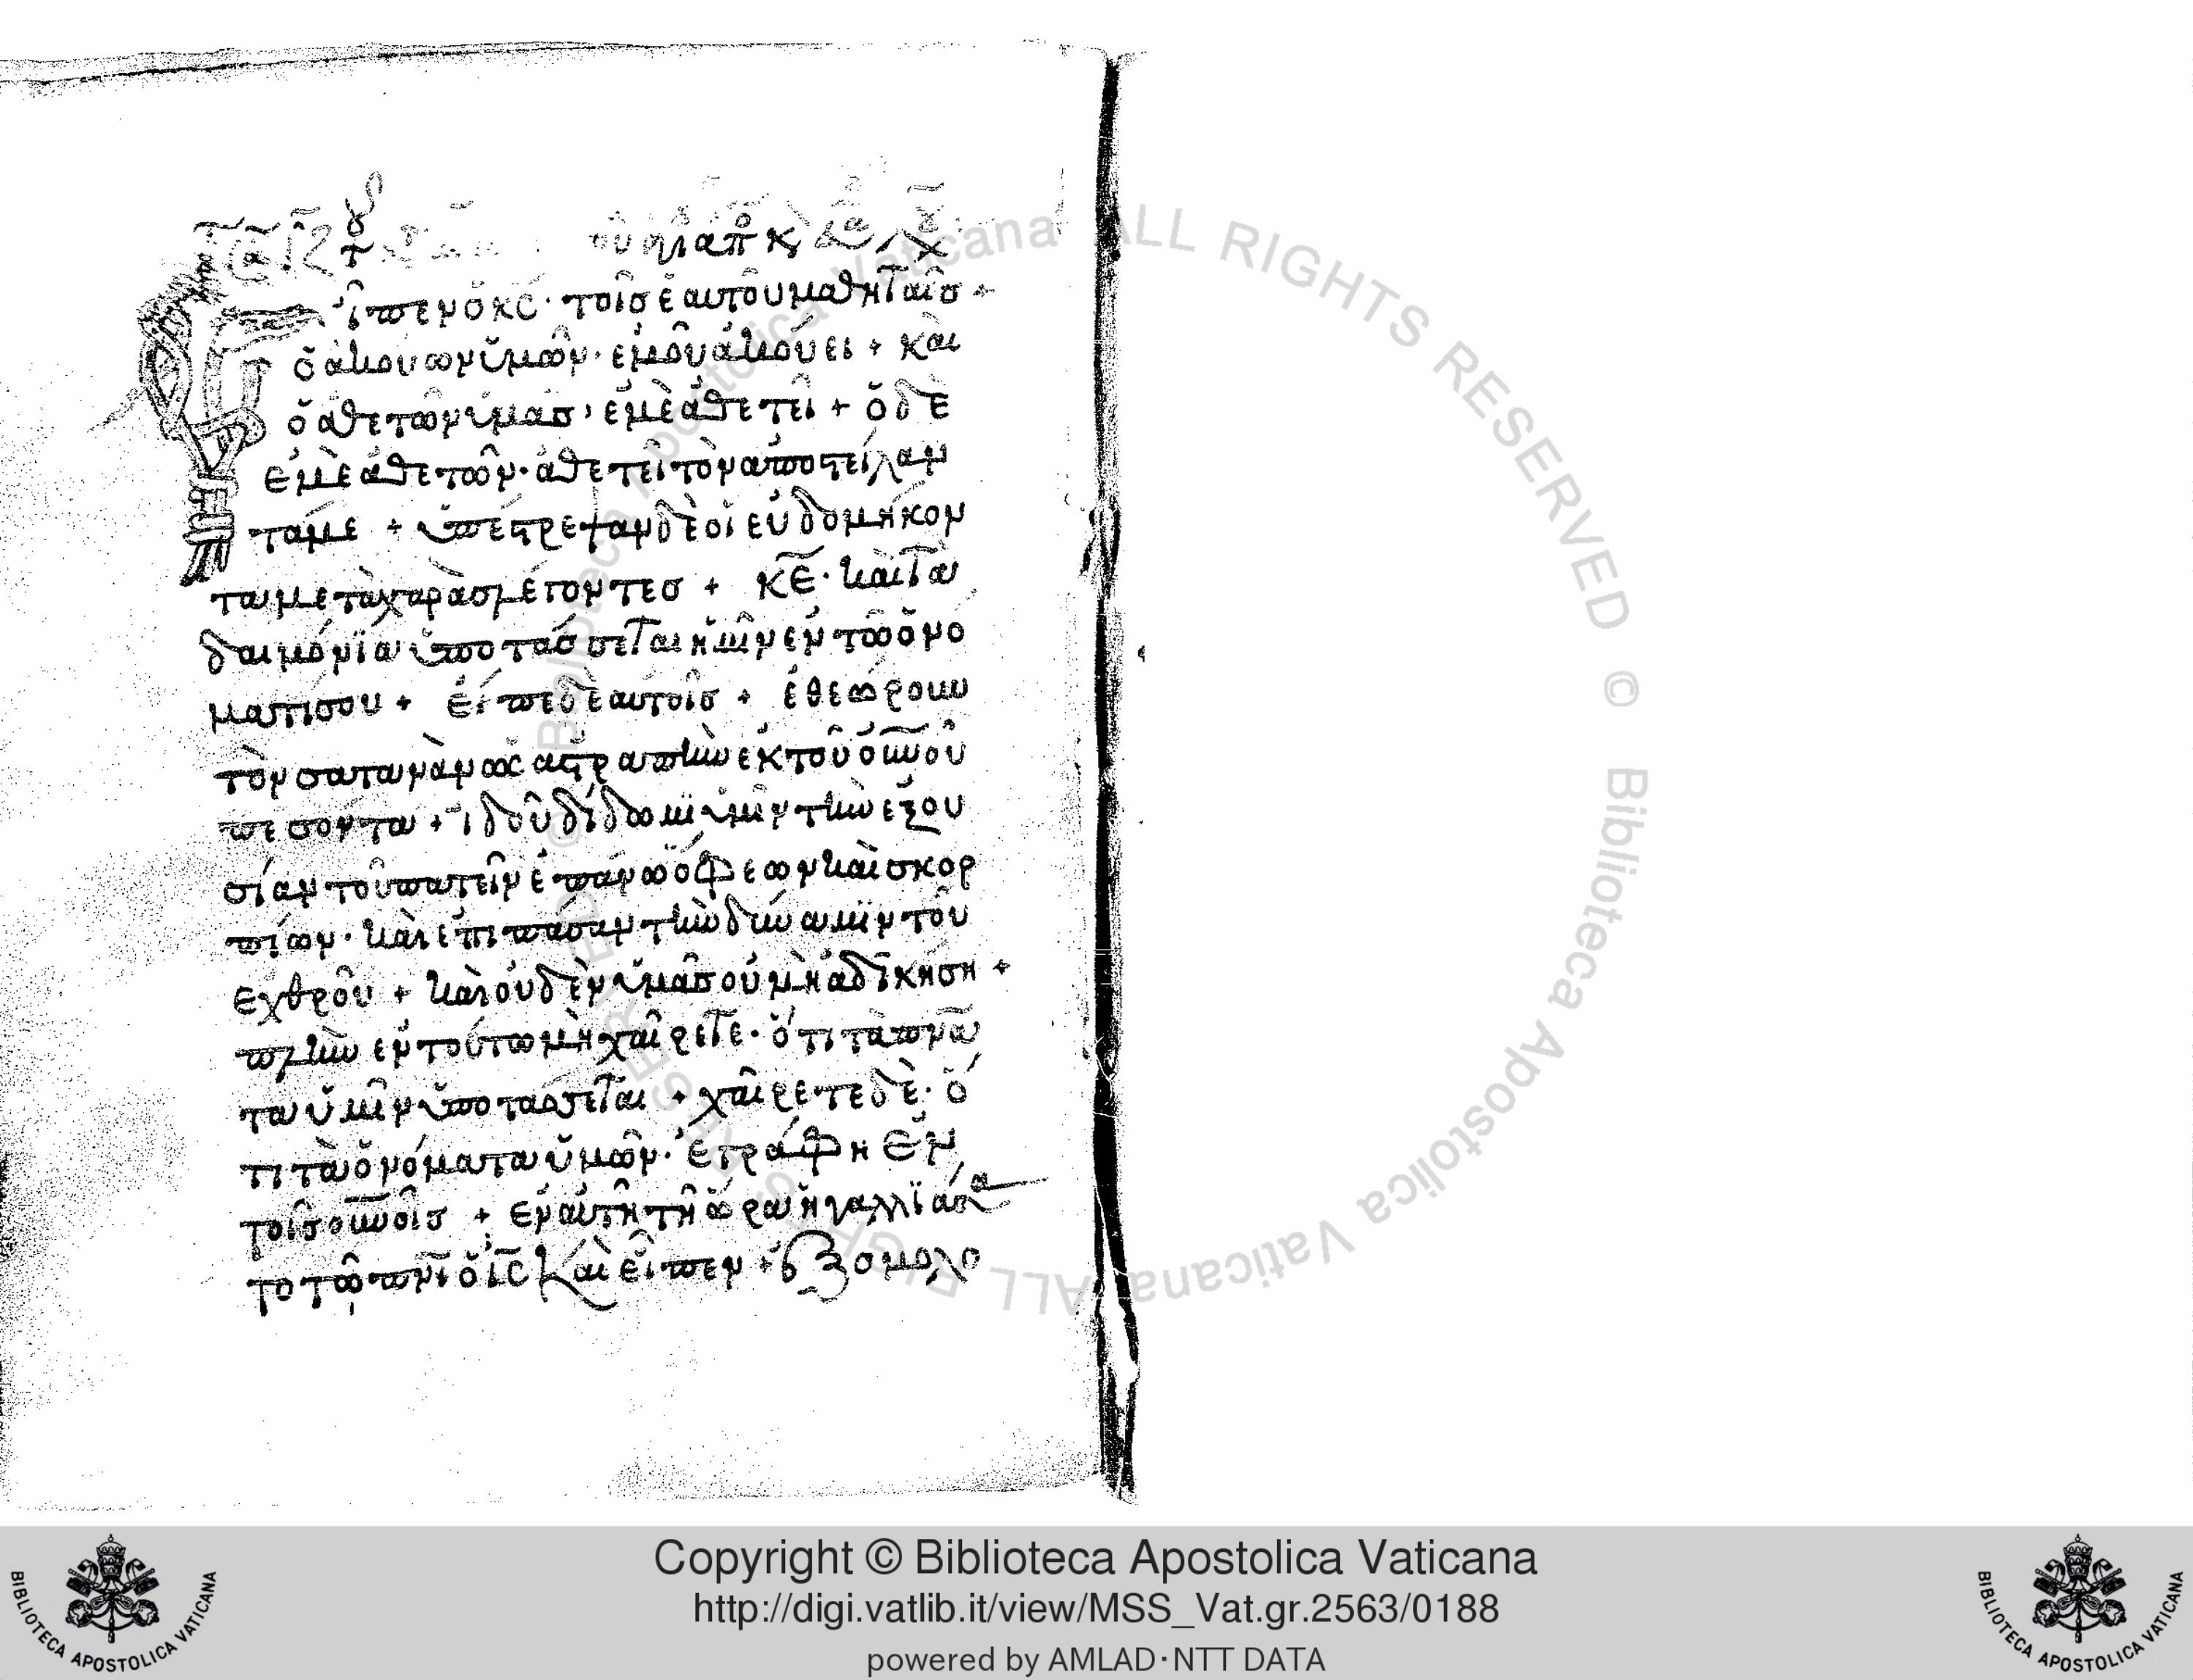 ἶπεν ὁ κς · τοῖσ ἑαυτοῦ μαθηταῖσ +
ὁ ἀκούων ὑμῶν · ἐμοῦ ἀκούει + καὶ
ὁ ἀθετῶν ὑμᾶσ, ἐμὲ ἀθετεῖ + ὁ δὲ
ἐμὲ ἀθετῶν · ἀθετεῖ τὸν ἀποστείλαν
τά με + ὑπέστρεψαν δὲ οἱ εὐδομήκον
τα μετὰ χαρᾶσ λέγοντεσ + κε · καὶ τὰ
δαιμόνϊα ὑποτάσσεται ἡμῖν ἐν τῶ ὀνό
ματί σου + εἶπε δὲ αὐτοῖσ + ἐθεώρουν
τὸν σατανᾶν ὡς ἀστραπὴν ἐκ τοῦ οὐνοῦ
πεσόντα + ἰδοῦ δίδωμϊ ὑμῖν τὴν ἐξου
σίαν τοῦ πατεῖν ἐπάνω ὄφεων καὶ σκορ
πίων · καὶ ἐπι πάσαν τὴν δύναμϊν τοῦ
ἐχθροῦ + καὶ οὐδὲν ὑμᾶσ οὐ μὴ ἀδϊκήση +
πλὴν ἐν τούτω μὴ χαίρετε · ὅτι τὰ πνα
τα ὑμῖν ὑποτάσσεται + χαίρετε δὲ · ὅ
τι τὰ ὀνόματα ὑμῶν · ἐγράφη ἐν
τοῖσ οὐνοῖσ + ἐν αὐτῆ τῆ ὥρα ἠγαλλϊάσα
το τῶ πνι ὁ ις καὶ εἶπεν + ἐξομολο
Copyright © Biblioteca Apostolica Vaticana
http://digi.vatlib.it/view/MSS_Vat.gr.2563/0188
powered by AMLAD·NTT DATA
BIBLIOTECA APOSTOLICA VATICANA
BIBLIOTECA APOSTOLICA VATICANA
© Biblioteca Apostolica Vaticana ALL RIGHTS RESERVED © Biblioteca Apostolica Vaticana ALL RIGHTS RESERVED